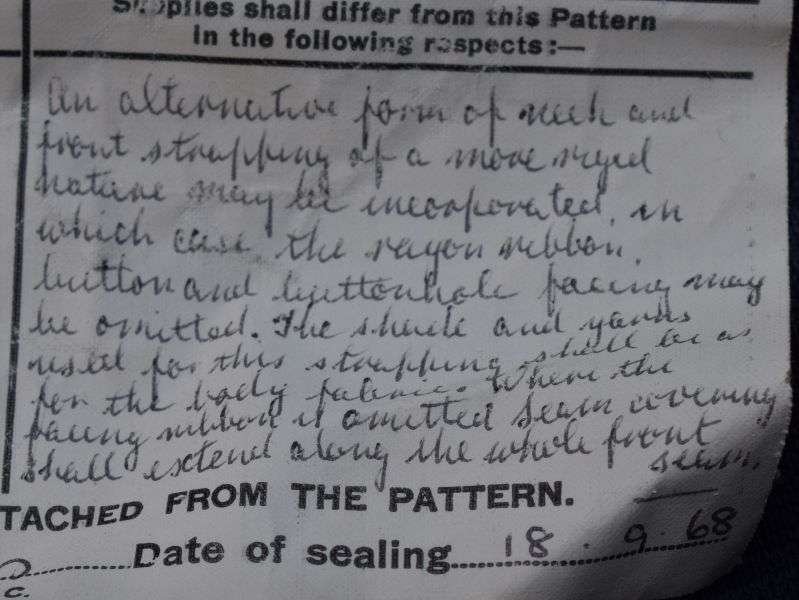 Supplies shall differ from this Pattern
in the following respects:—
An alternative form of neck and
front strapping of a more rigid
nature may be incorporated, in
which case the rayon ribbon,
button and buttonhole facing may
be omitted. The shade and yarns
used for this strapping shall be as
for the body fabric. Where the
facing ribbon is omitted seam covering
shall extend along the whole front
seam.
TACHED FROM THE PATTERN.
Date of sealing 18.9.68
c.